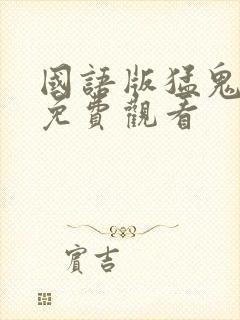 國語版猛鬼
免費觀看
賓吉